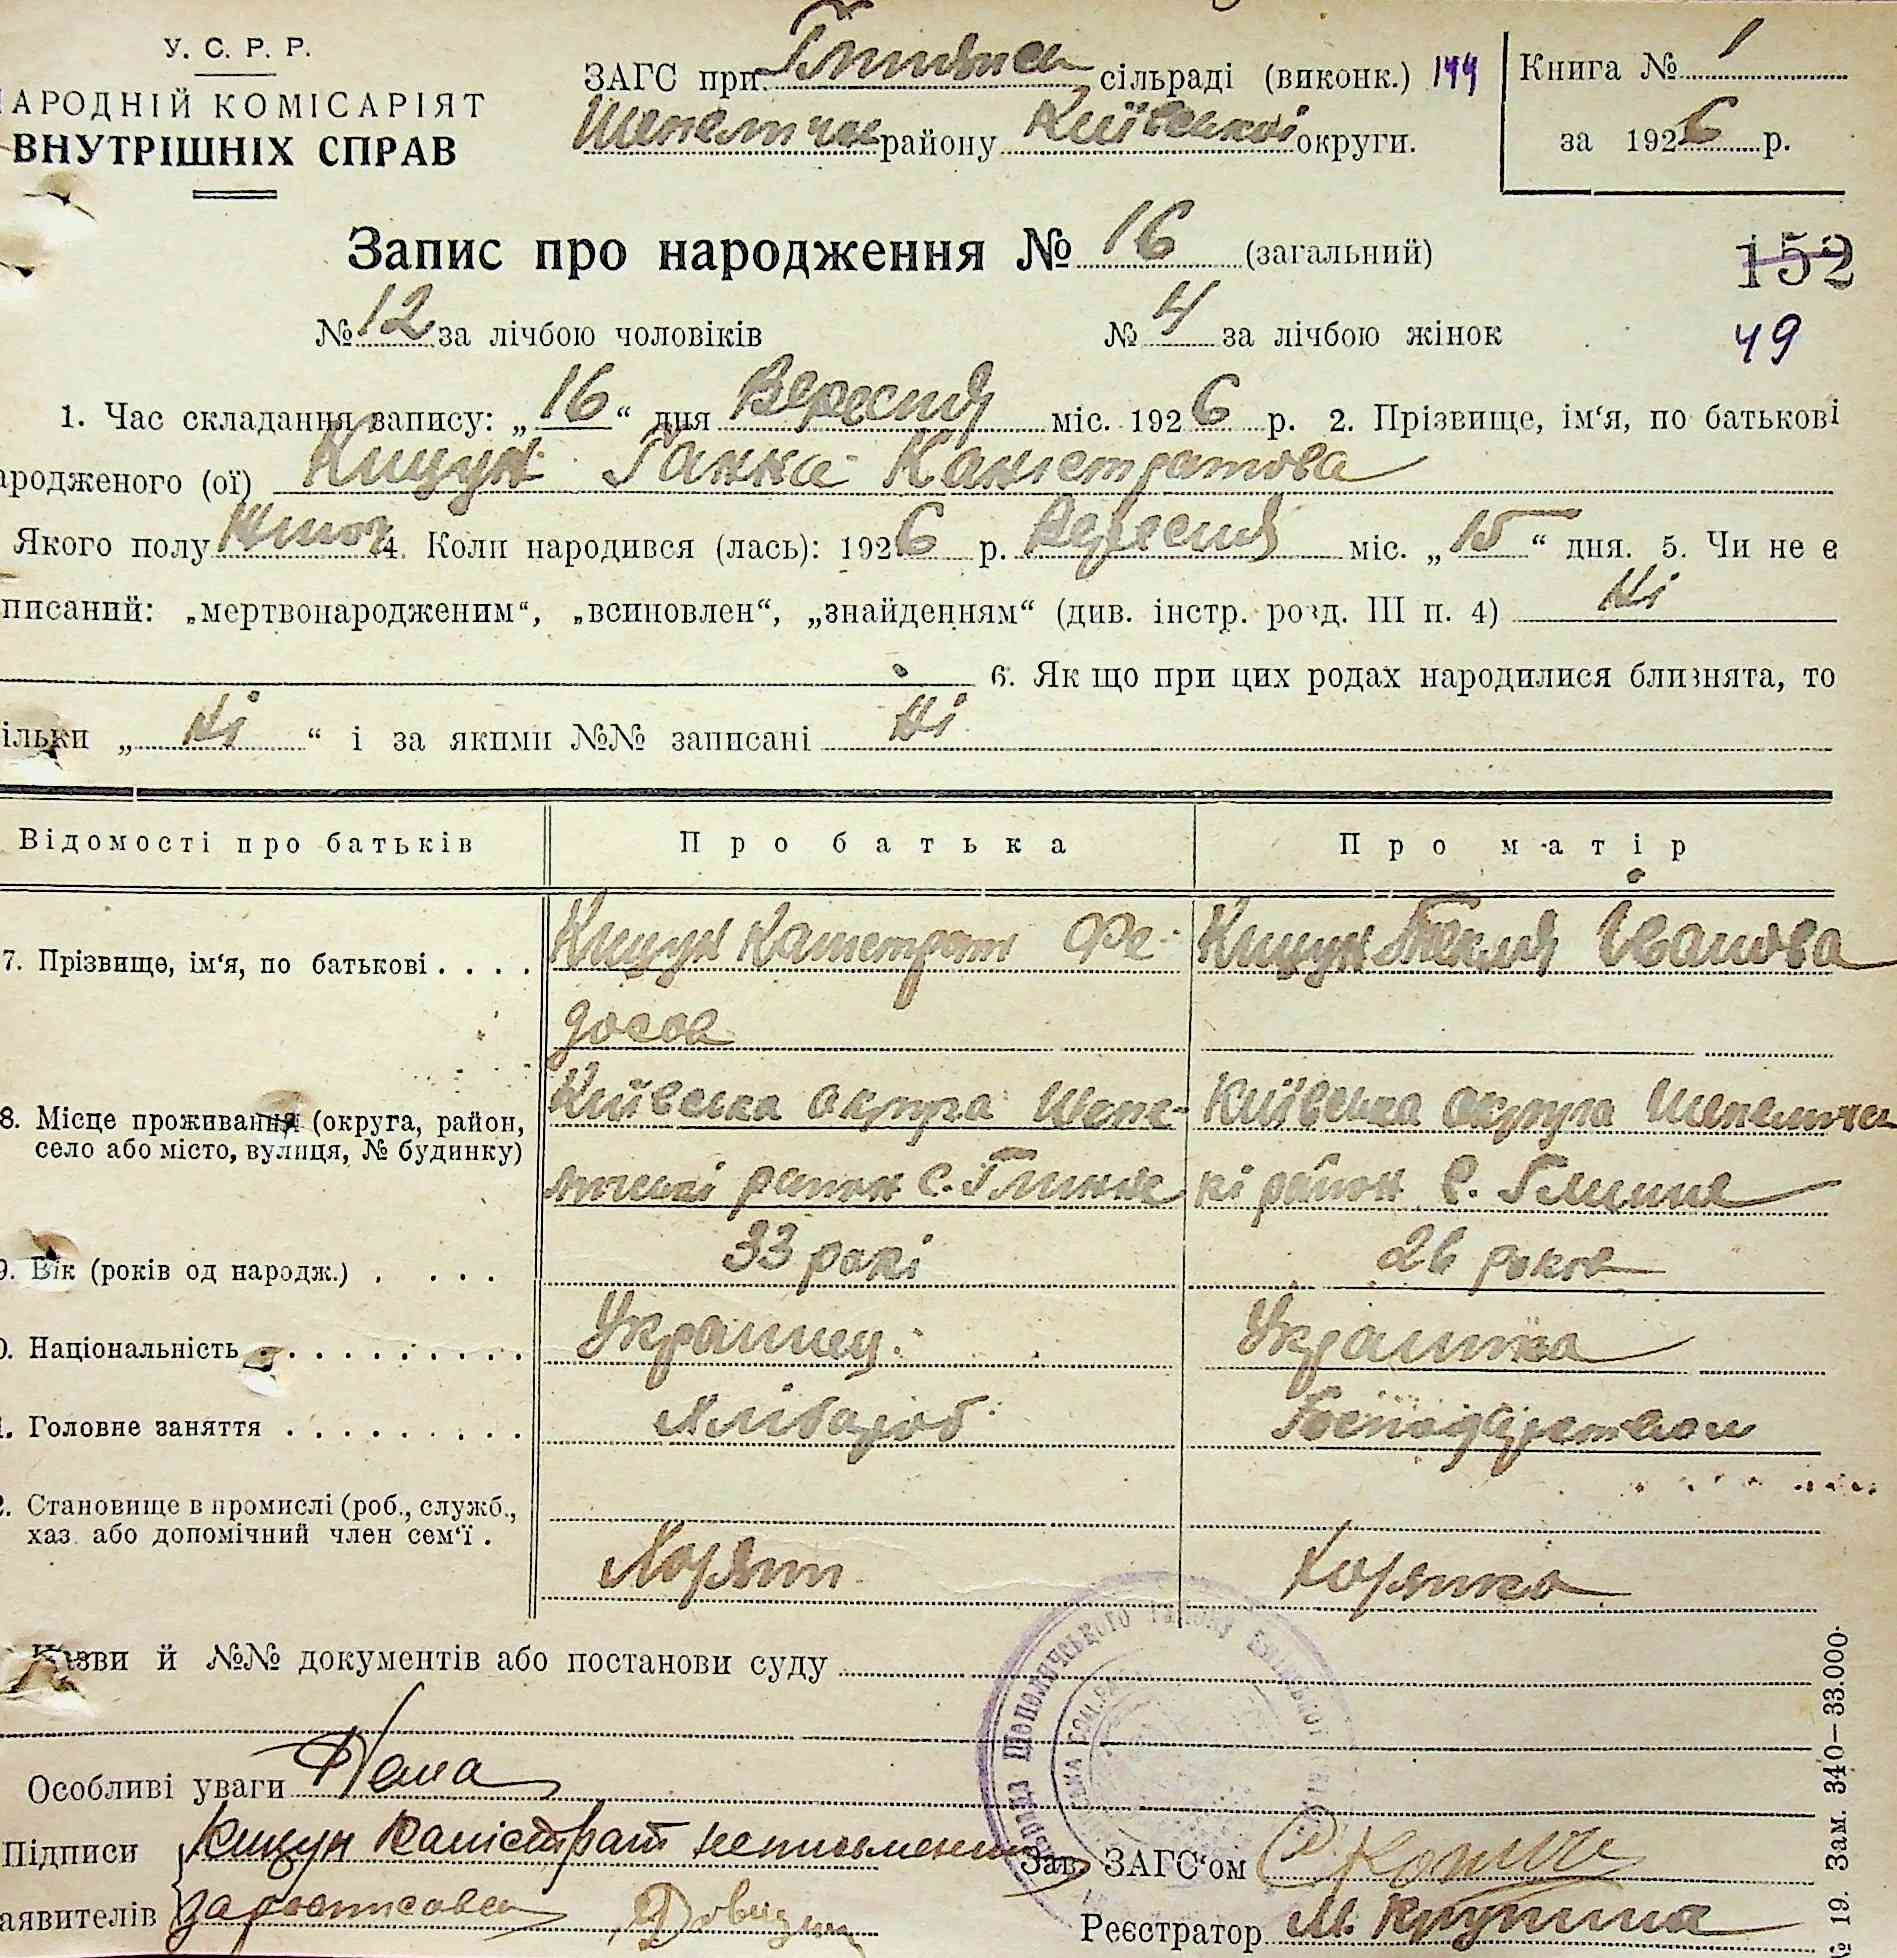 У. С. Р. Р.
АРОДНІЙ КОМІСАРІЯТ
ВНУТРІШНІХ СПРАВ
ЗАГС при сільраді (виконк.) 144
району Київської округи.
Книга № 1
за 1926 р.
Запис про народження № 16 (загальний)
152
№ 12 за лічбою чоловіків № 4 за лічбою жінок
49
1. Час складання запису: „16“ дня Вересня міс. 1926 р. 2. Прізвище, ім‘я, по батькові
ародженого (ої) Кищук Ганна Каністратова
Якого полу жіноч 4. Коли народився (лась): 1926 р. Вересня міс. „15“ дня. 5. Чи не є
писаний: „мертвонародженим“, „всиновлен“, „знайденням“ (див. інстр. розд. III п. 4) Ні
6. Як що при цих родах народилися близнята, то
ільки „Ні“ і за якими №№ записані Ні
Відомості про батьків Про батька Про матір
7. Прізвище, ім‘я, по батькові . . . . Кищук Каністрат Фе- Кищук Текля Іванова
досов
8. Місце проживання (округа, район, село або місто, вулиця, № будинку) Київська округа Шепе- Київська округа Шепелическі район с. Глинка
район с. Глинка
9. Вік (років од народж.) . . . . 33 рокі 26 роков
0. Національність . . . . . . . . . Украинец Украинка
. Головне заняття . . . . . . . . . Хлібороб
2. Становище в промислі (роб., служб.,
хаз. або допомічний член сем‘ї .
Назви й №№ документів або постанови суду
Особливі уваги Нема
Підписи Кищун Каністрат неписьмений Зав. ЗАГС‘ом
аявителів зарозписовся Реєстратор М. Крупина
№ 19. Зам. 340—33.000.